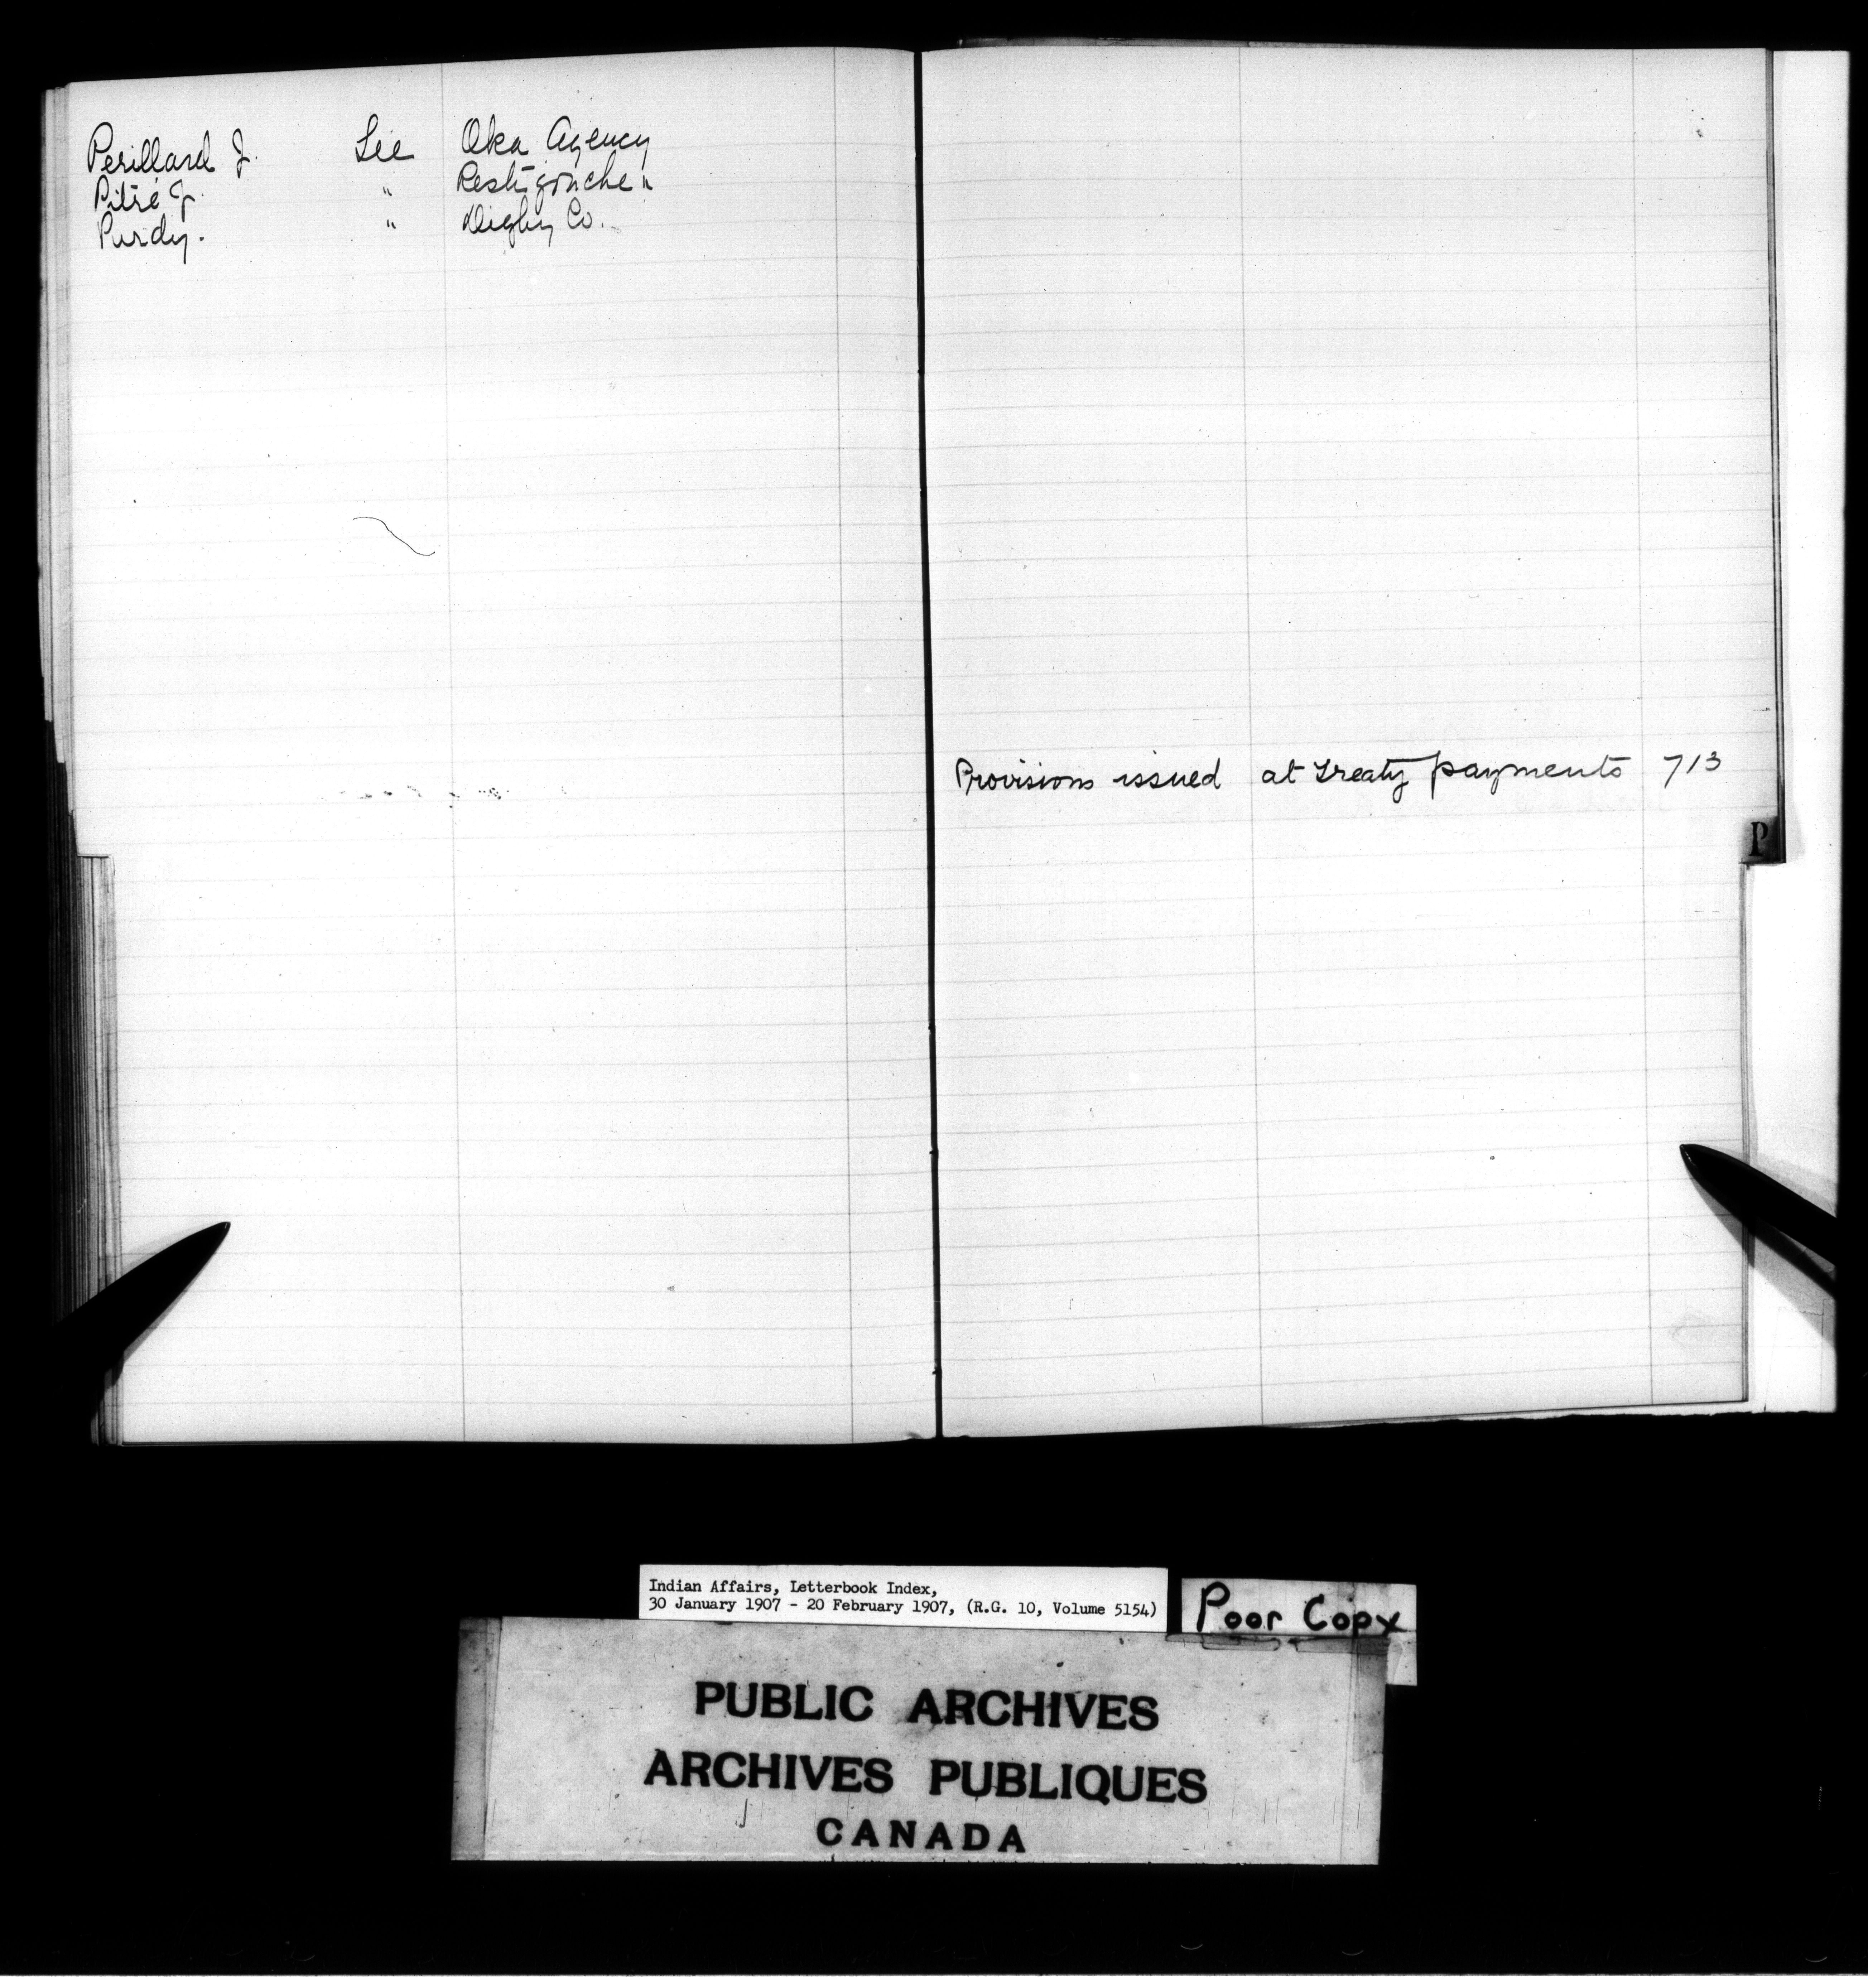 Perillard J. See Oka Agency
Pitre J. " Restigouche "
Purdy. " Digby Co.
Provisions issued at treaty payments 713
P
Indian Affairs, Letterbook Index,
30 January 1907 - 20 February 1907, (R.G. 10, Volume 5154)
Poor Copy
PUBLIC ARCHIVES
ARCHIVES PUBLIQUES
CANADA